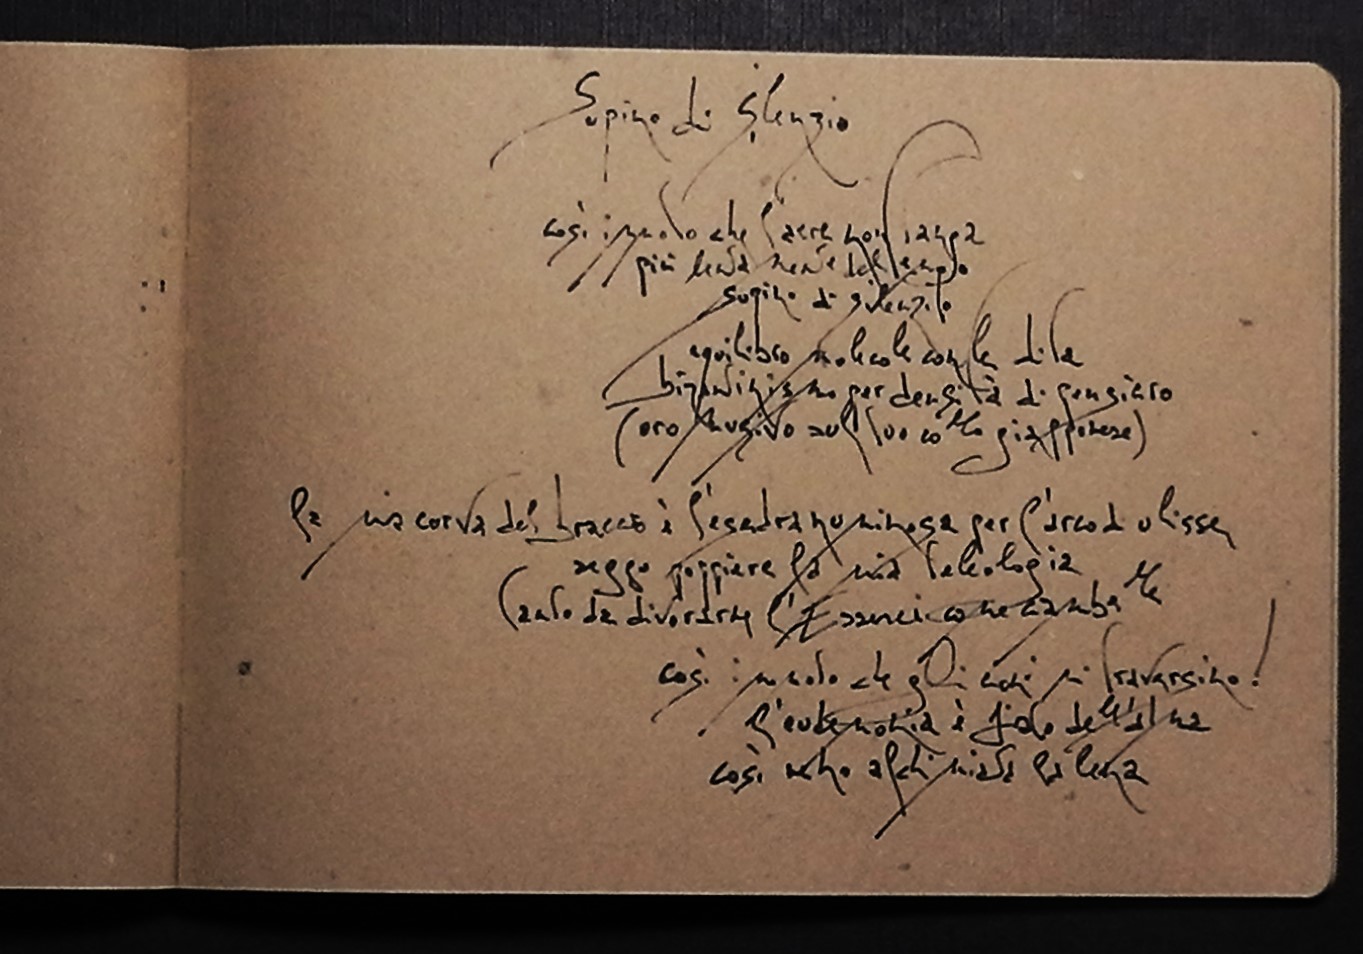 Supino di Silenzio
così immoto che l'aere non langa
più lenta mente del tempo
supino di silenzio
equilibro molecole con le dita
bizantinismo per densità di pensiero
(oro musivo sull'uovo giapponese)
la mia curva del braccio è l'esedra numinosa per l'arco di ulisse
reggo poggiare la mia teleologia
(tanto da divorarne l'Essenci come
così immoto che gli anni mi traversino!
l'eudemonia è fiato dell'alma
così alchimiata la lena